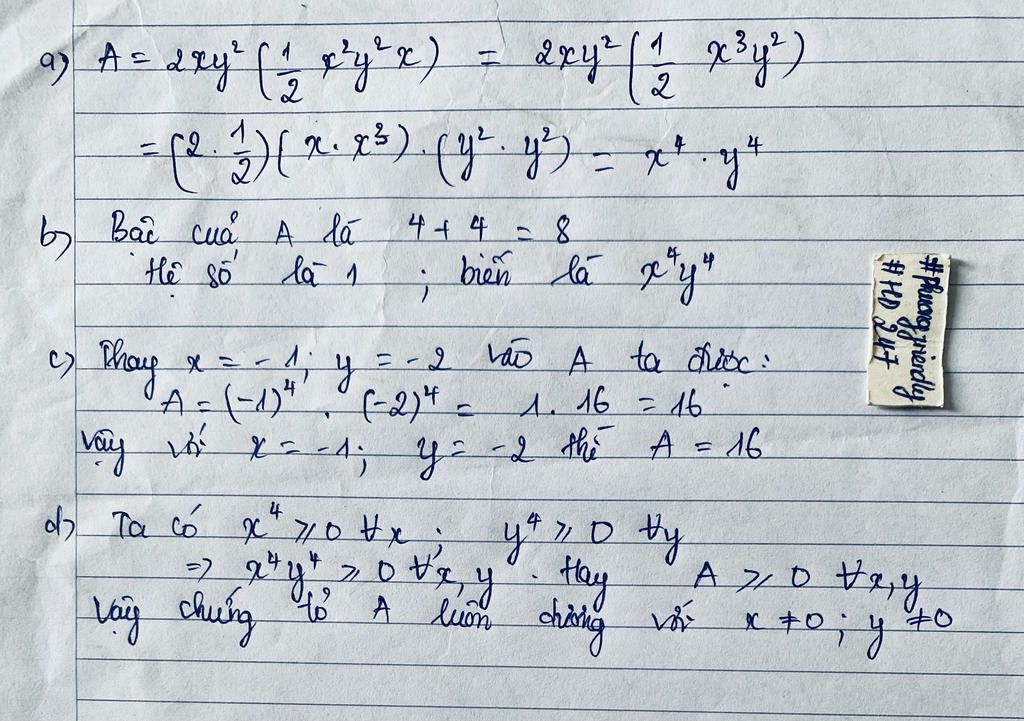 a) A = 2xy² ( 1/2 x²y²x ) = 2xy² ( 1/2 x³y² )
= ( 2 . 1/2 ) ( x . x³ ) . ( y² . y² ) = x⁴ . y⁴
b) Bậc của A là 4 + 4 = 8
Hệ số là 1 ; biến là x⁴y⁴
c) Thay x = -1; y = -2 vào A ta được:
A = (-1)⁴ . (-2)⁴ = 1 . 16 = 16
Vậy với x = -1; y = -2 thì A = 16
d) Ta có x⁴ ⩾ 0 ∀x ; y⁴ ⩾ 0 ∀y
=> x⁴y⁴ ⩾ 0 ∀x, y . Hay A ⩾ 0 ∀x, y
Vậy chứng tỏ A luôn dương với x ≠ 0 ; y ≠ 0
#HD 247